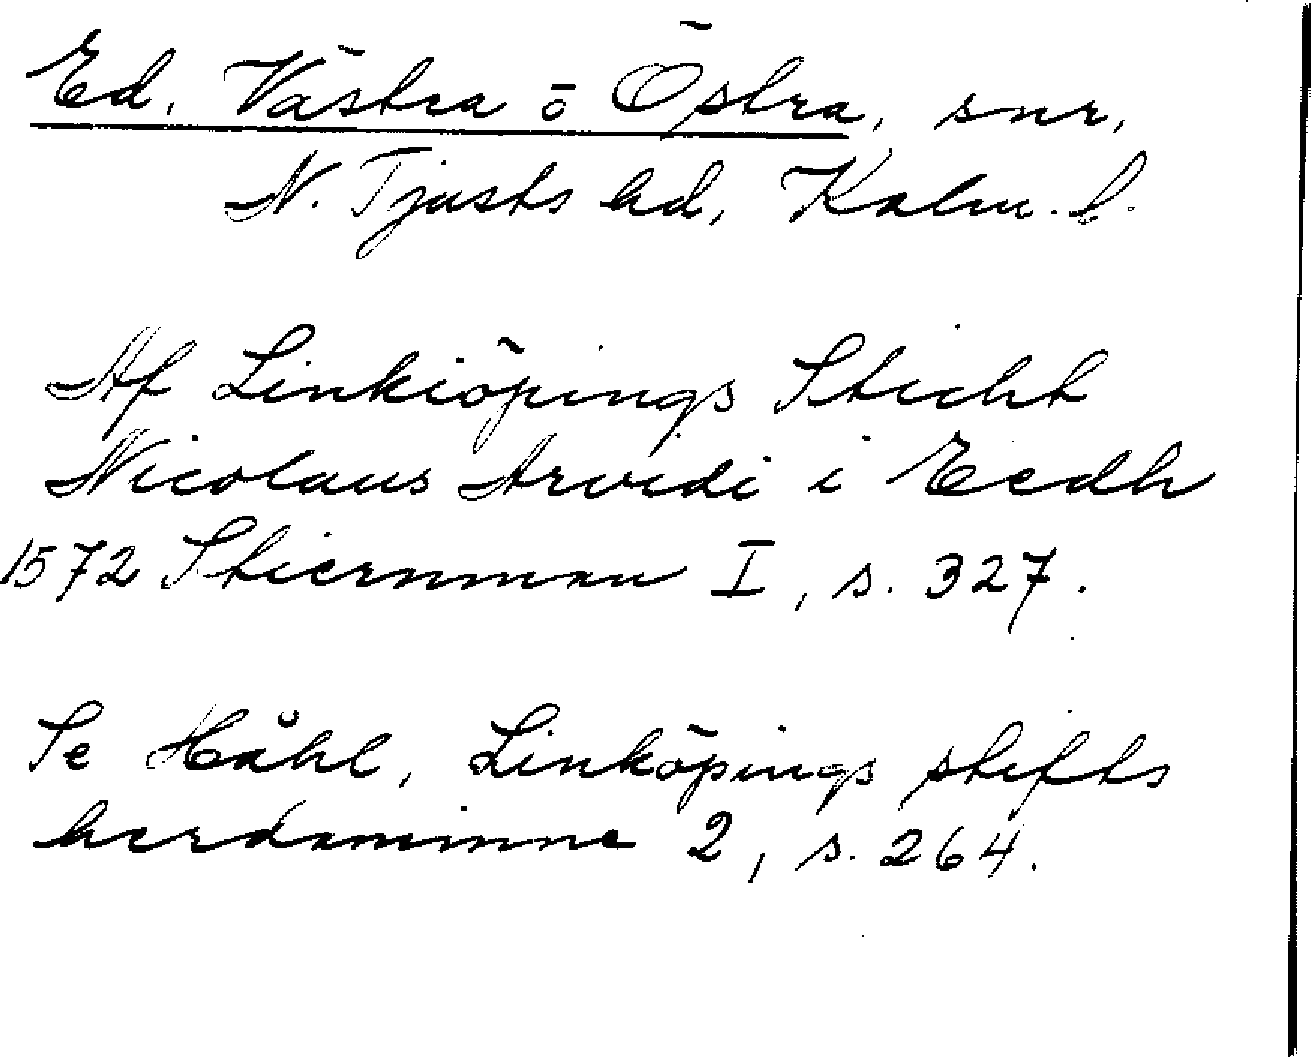 Ed, Västra o Östra, snr,
N. Tjusts hd, Kalm. l.
Af Linkiöpings Sticht
Nicolaus Arvidi i Eedh
1572 Stiernman I, s. 327.
Se Håhl, Linköpings stifts
herdaminne 2, s. 264.